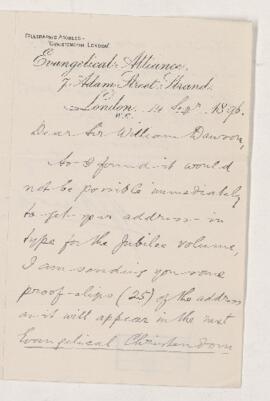 TELEGRAPHIC ADDRESS:-
"CHRISTENDOM LONDON"
Evangelical Alliance,
7, Adam Street, Strand,
London, 14 Sepr. 1896.
W.C.
Dear Sir William Dawson,
As I found it would
not be possible immediately
to get your address in
type for the Jubilee volume,
I am sending you some
proof-slips (25) of the address
as it will appear in the next
Evangelical Christendom